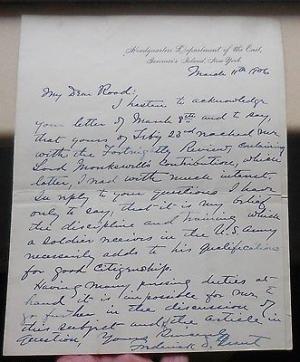 Headquarters Department of the East,
Governor's Island, New York
March 11th 1906
My Dear Rood:
I hasten to acknowledge
your letter of March 8th and to say,
that yours of Feby 23rd reached me
with the Fortnightly Review, containing
Lord Monkswell's Contribution, which
latter, I read with much interest.
In reply to your questions I have
only to say, that it is my belief
the discipline and training which
a soldier receives in the U.S. Army
necessarily adds to his qualifications
for good Citizenship.
Having many pressing duties at
hand it is impossible for me to
go further in the discussion of
this subject and the article in
question, Yours Sincerely
Frederick D. Grant